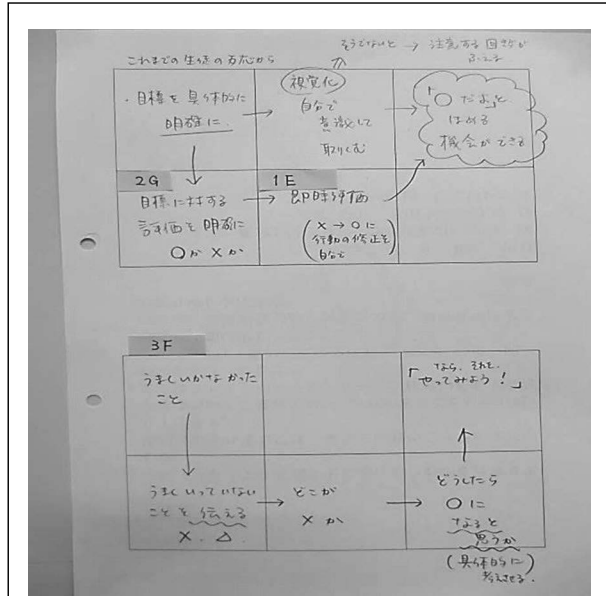 これまでの生徒の反応から
そうでないと → 注意する回数が
ふえる
・目標を具体的に
明確に
視覚化
自分で
意識して
取りくむ
「○だよ」と
ほめる
機会ができる
2G
目標に対する
評価を明確に
○か×か
1E
即時評価
(×→○に
行動の修正を
自分で)
3F
うまくいかなかった
こと
「なら、それを、
やってみよう!」
うまくいっていない
ことを伝える
×、△
どこが
×か
どうしたら
○に
なると
思うか
(具体的に
考えさせる)